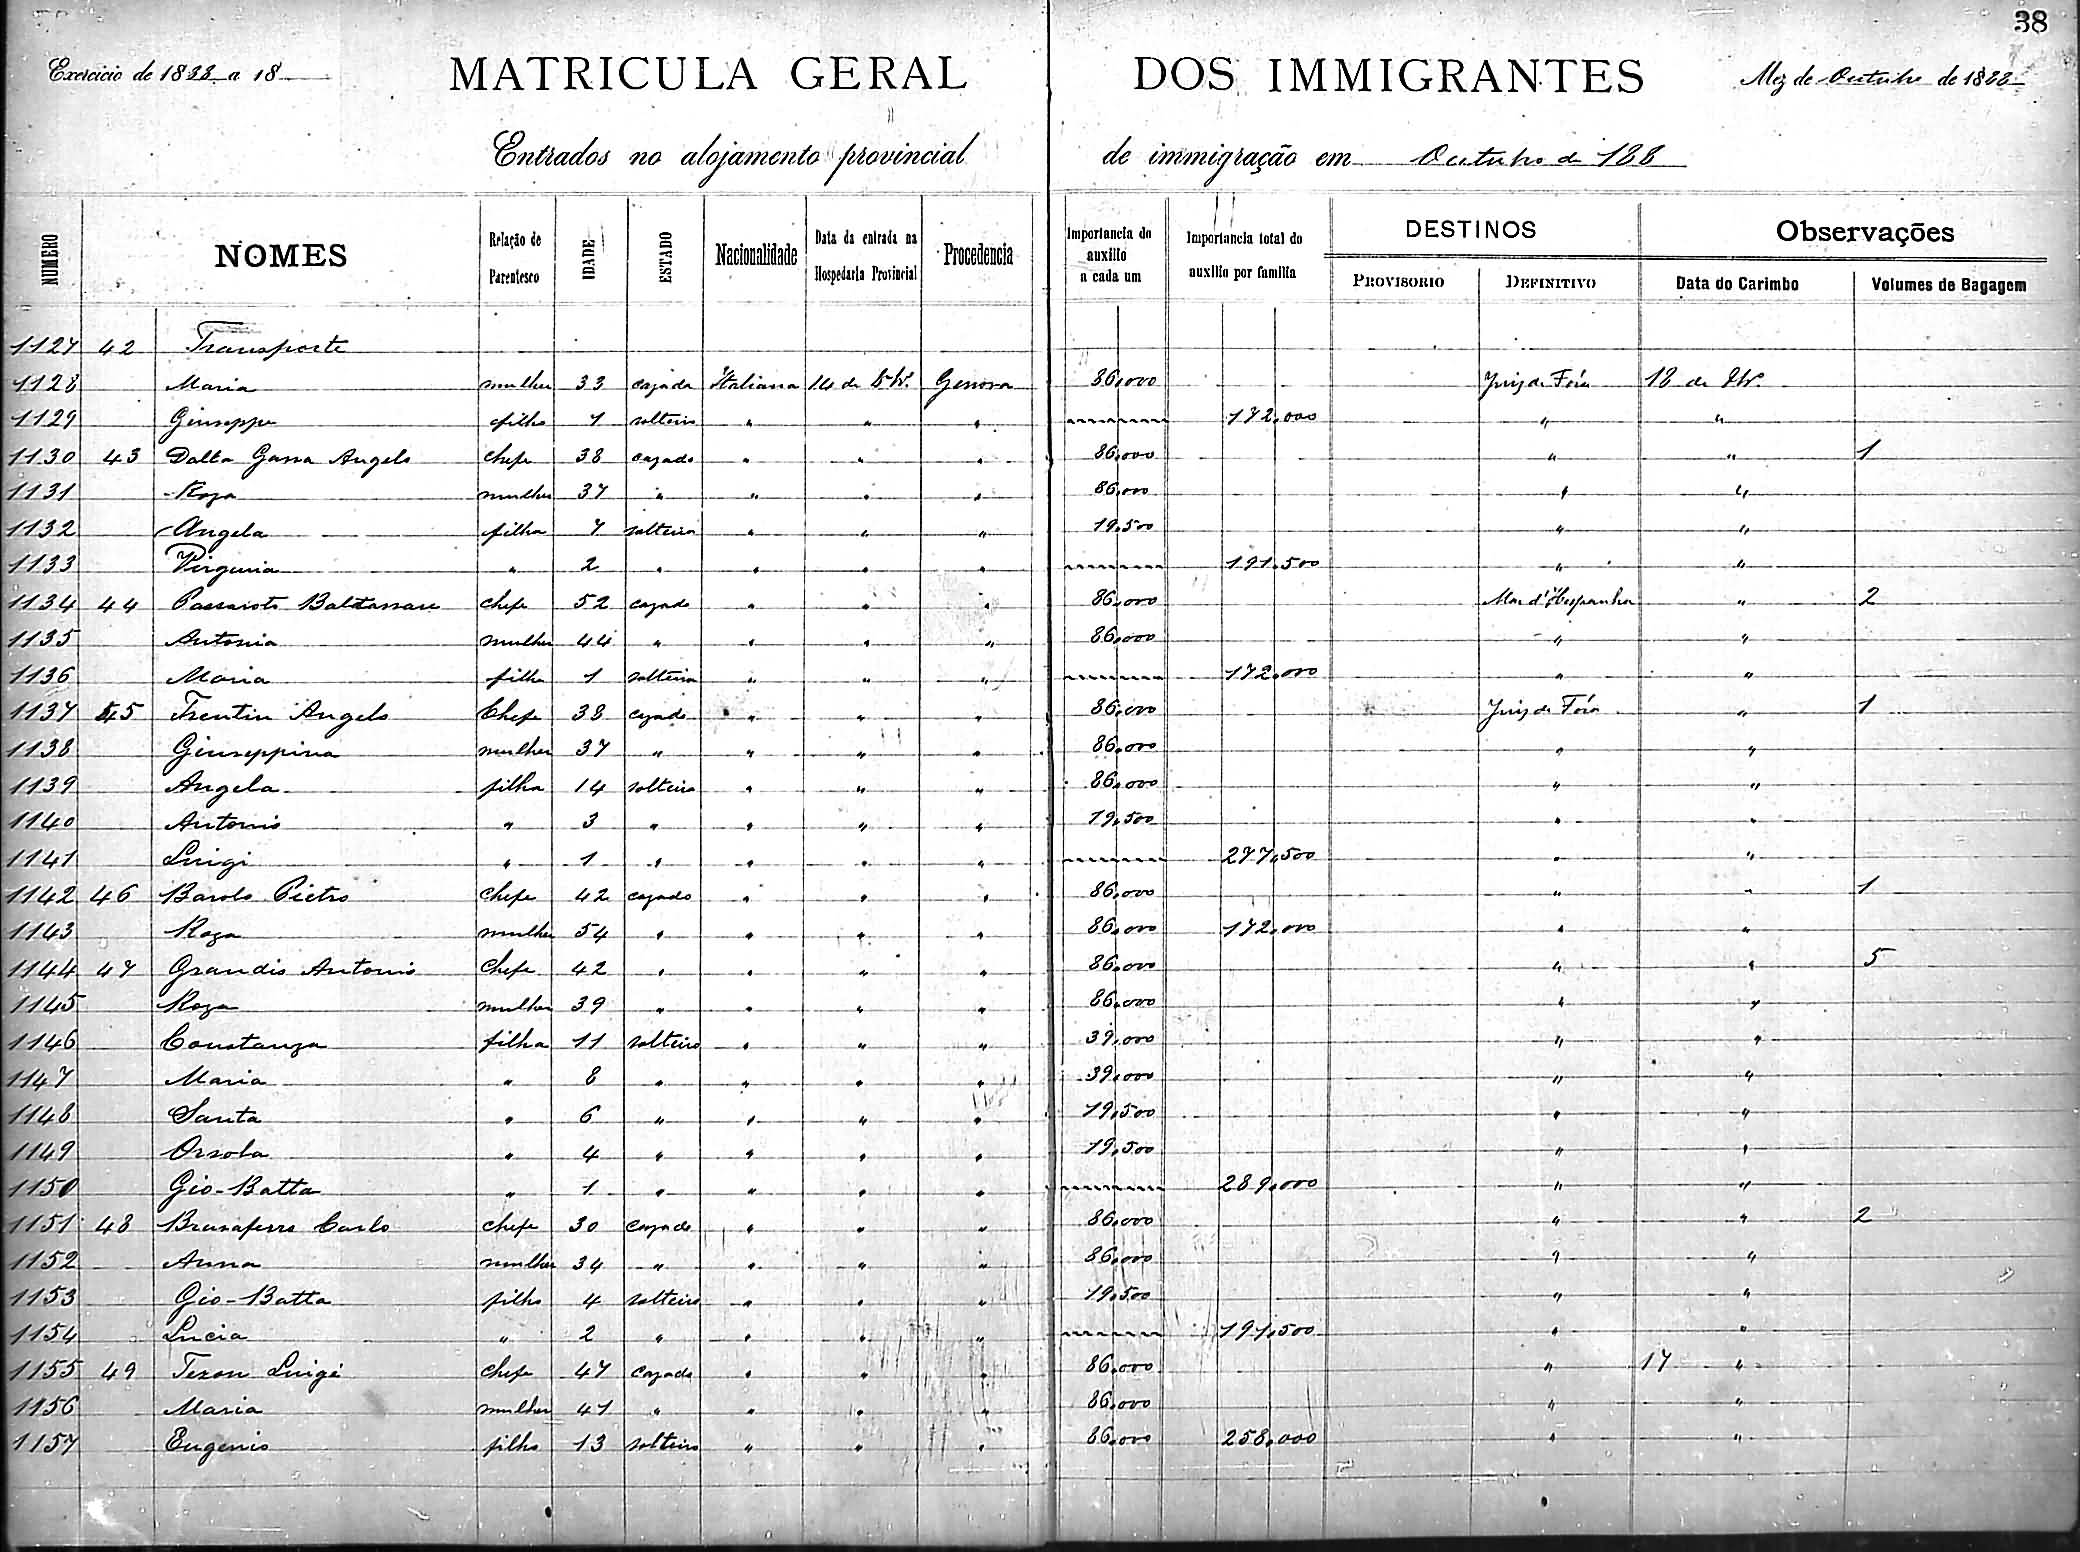 38
Exercicio de 1888 a 18 MATRICULA GERAL DOS IMMIGRANTES Mez de Outubro de 1888
Entrados no alojamento provincial de immigração em Outubro de 188
NUMERO NOMES Relação de Parentesco IDADE ESTADO Nacionalidade Data da entrada na Hospedaria Provincial Procedencia Importancia do auxilio a cada um Importancia total do auxilio por familia DESTINOS PROVISORIO DEFINITIVO Observações Data do Carimbo Volumes de Bagagem
1127 42 Transporte
1128 Maria mulher 33 cazada Italiana 14 de Genova 86,000 Juiz de Fóra 18 de
1129 Giuseppe filho 1 solteiro " " " 172,000 " "
1130 43 Dalla Gassa Angelo chefe 38 cazado " " " 86,000 " " 1
1131 Roza mulher 37 " " " " 86,000 " "
1132 Angela filha 7 solteira " " " 19,500 " "
1133 Virginia " 2 " " " " 191,500 " "
1134 44 Baldassare chefe 52 cazado " " " 86,000 Mar d'Hespanha " 2
1135 Antonia mulher 44 " " " " 86,000 " "
1136 Maria filha 1 solteira " " " 172,000 " "
1137 45 Trentin Angelo Chefe 38 cazado " " " 86,000 Juiz de Fóra " 1
1138 Giuseppina mulher 37 " " " " 86,000 " "
1139 Angela filha 14 solteira " " " 86,000 " "
1140 Antonio " 3 " " " " 19,500 " "
1141 Luigi " 1 " " " " 277,500 " "
1142 46 Barolo Pietro chefe 42 cazado " " " 86,000 " " 1
1143 Roza mulher 54 " " " " 86,000 172,000 " "
1144 47 Grandis Antonio Chefe 42 " " " " 86,000 " " 5
1145 Roza mulher 39 " " " " 86,000 " "
1146 Constanza filha 11 solteiro " " " 39,000 " "
1147 Maria " 8 " " " " 39,000 " "
1148 Santa " 6 " " " " 19,500 " "
1149 Orsola " 4 " " " " 19,500 " "
1150 Gio-Batta " 1 " " " " 289,000 " "
1151 48 Brunaferro Carlo chefe 30 cazado " " " 86,000 " " 2
1152 Anna mulher 34 " " " " 86,000 " "
1153 Gio-Batta filho 4 solteiro " " " 19,500 " "
1154 Lucia " 2 " " " " 191,500 " "
1155 49 Teson Luigi chefe 47 cazado " " " 86,000 " 17 "
1156 Maria mulher 41 " " " " 86,000 " "
1157 Eugenio filho 13 solteiro " " " 86,000 258,000 " "